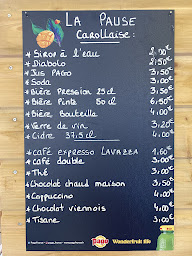 LA PAUSE
Carollaise:
* Sirop à l'eau 2,00€
* Diabolo 2,50€
* Jus PAGO 3,50€
* Soda 3,00€
* Bière Pression 25cl 3,50€
* Bière Pinte 50cl 6,50€
* Bière bouteille 4,00€
* Verre de vin 3,20€
* Cidre 37,5cl 4,00€
* café expresso LAVAZZA 1,60€
* café double 3,00€
* Thé 3,00€
* Chocolat chaud maison 3,50€
* Cappuccino 4,00€
* Chocolat viennois 4,00€
* Tisane 3,00€
Pago Wonderfruit life